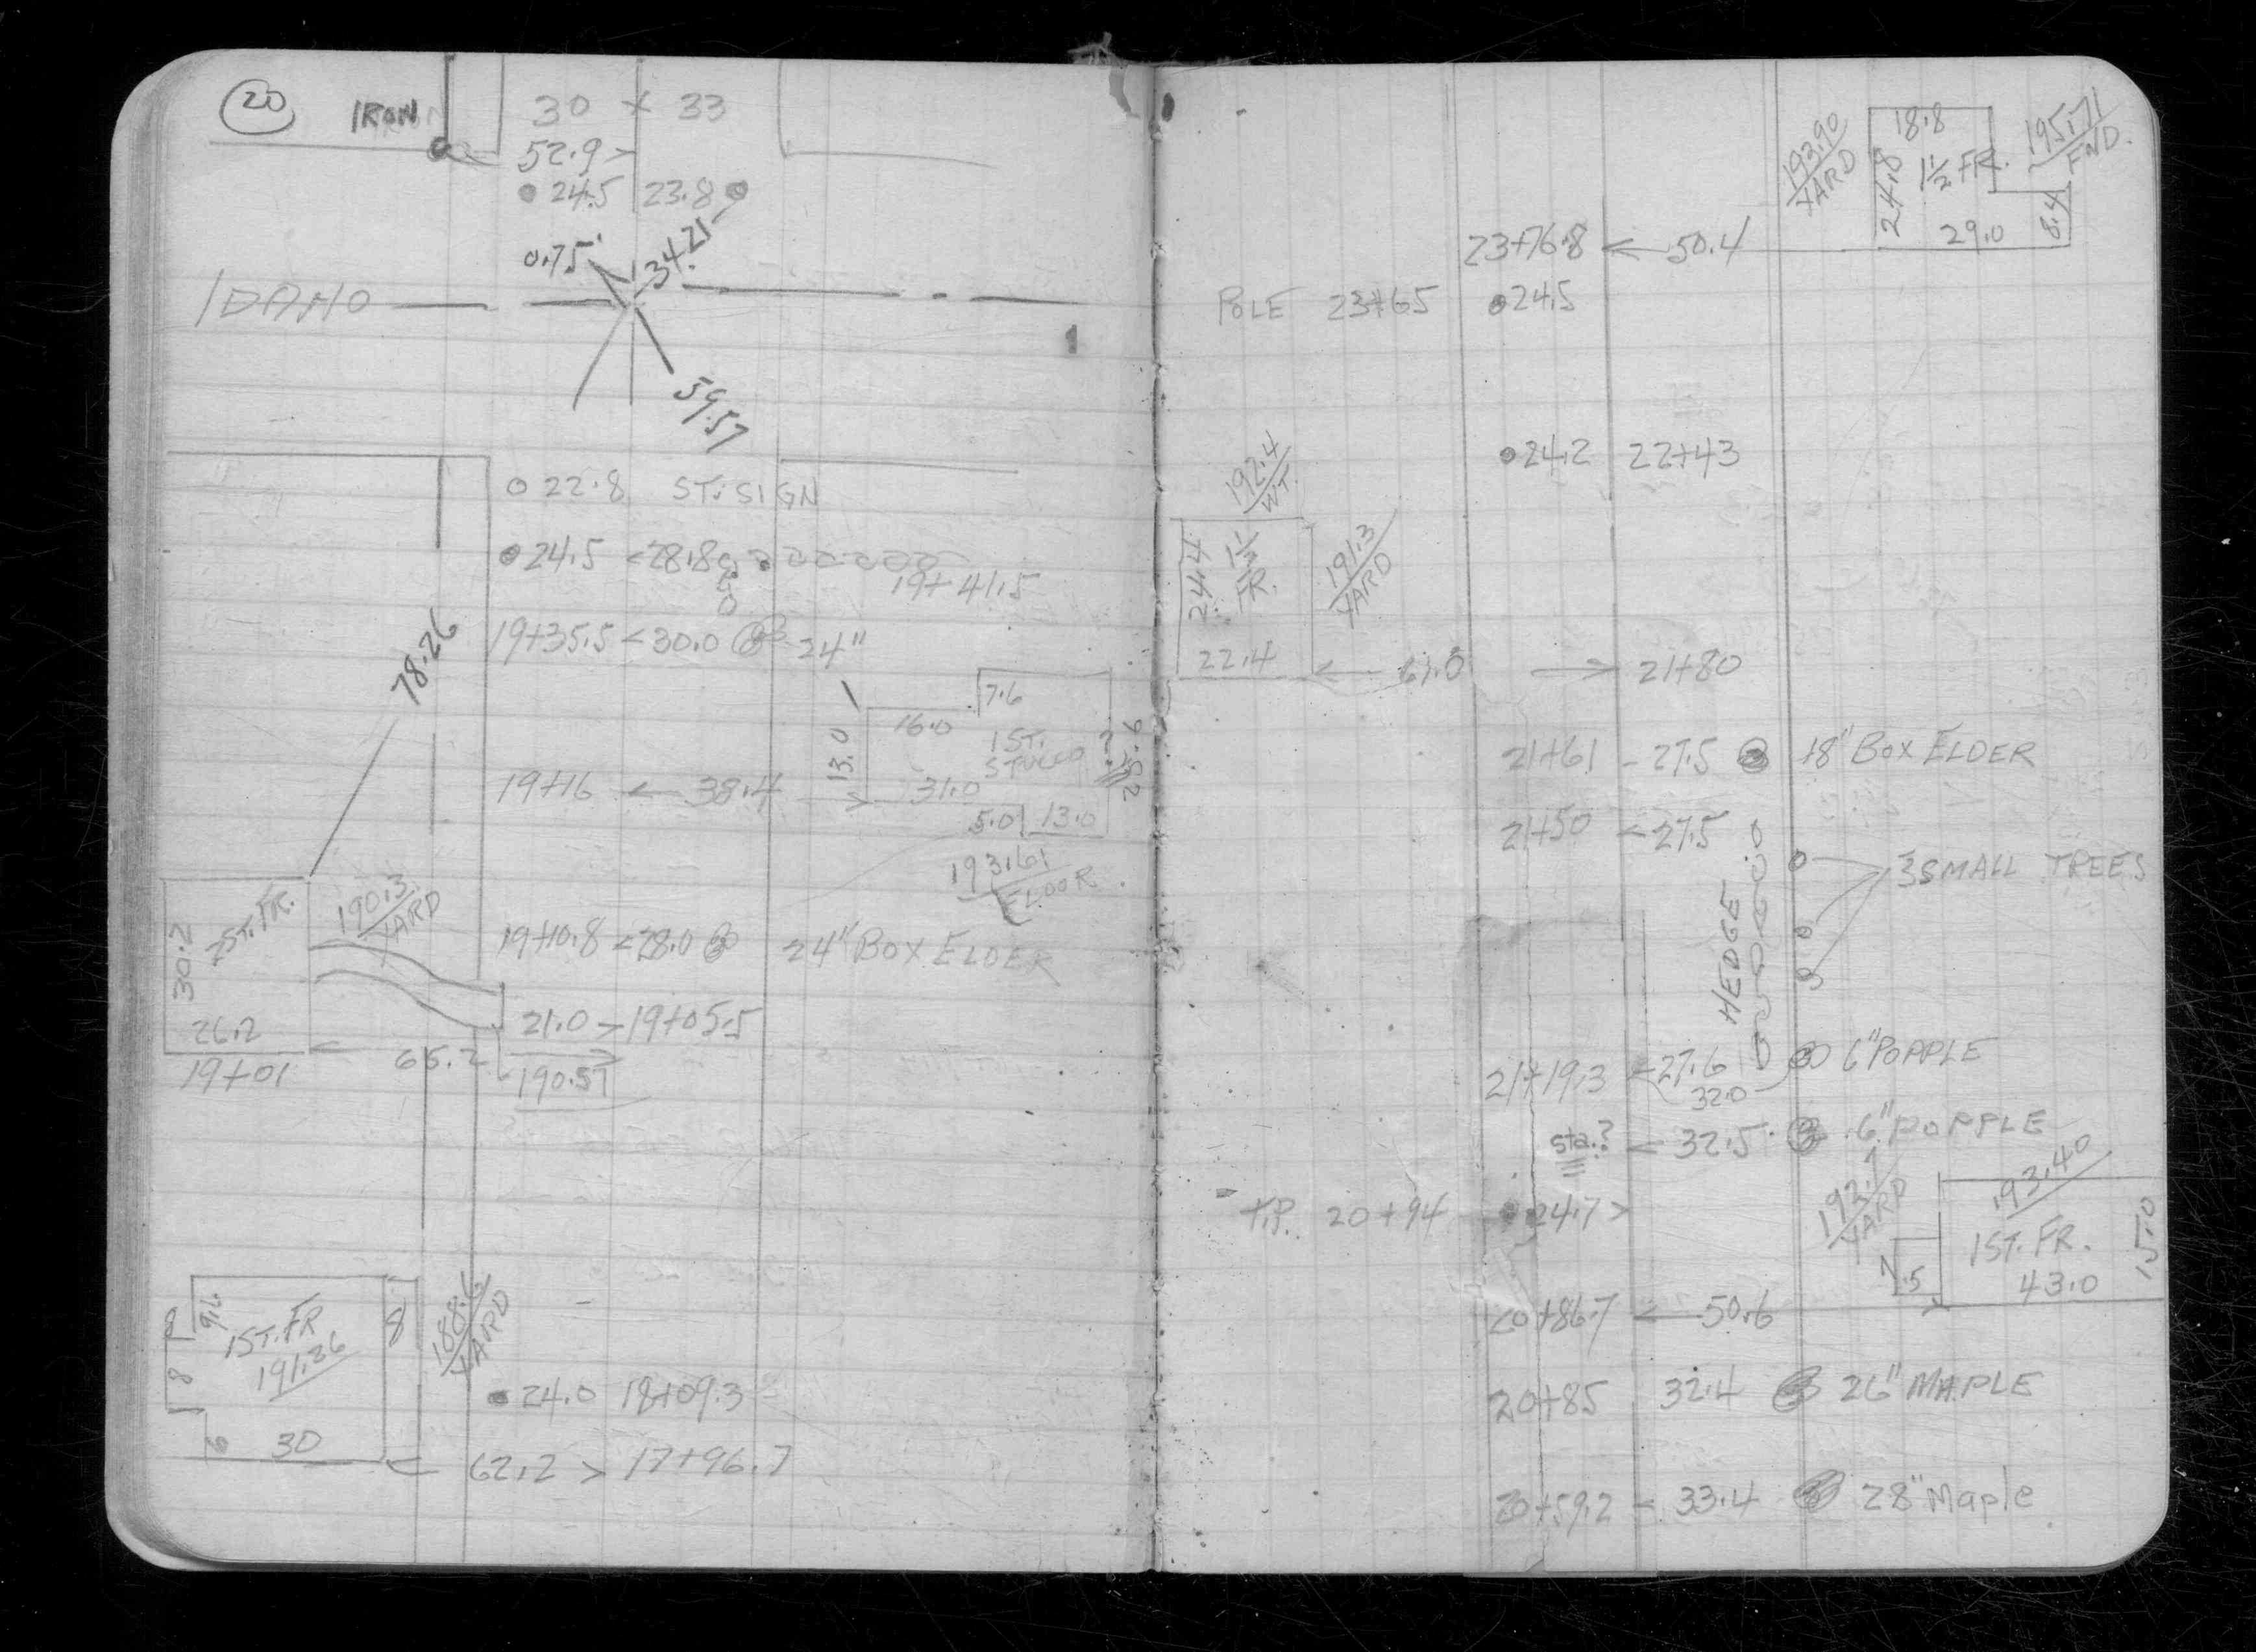 20
IRON
30 x 33
52.9 >
24.5 23.8
0.75'
34.21
IDAHO
59.57
22.8 ST. SIGN
24.5 < 28.8
19+41.5
19+35.5 < 30.0 24"
78.26
7.6
16.0
13.0
1 ST.
STUCCO
?
25.6
19+16 ← 38.4 → 31.0
5.0 13.0
193.61
FLOOR
190.3
YARD
ST. FR.
30.2
26.2
19+01
65.2
19+10.8 < 28.0 24" BOX ELDER
21.0 > 19+05.5
190.57
188.6
YARD
9.6
8
8
1 ST. FR
191.26
8
6
30
24.0 18+09.3
62.2 > 17+96.7
193.90
YARD
18.8
24.8
1½ FR.
195.71
FND.
29.0
8.4
23+76.8 ← 50.4
POLE 23+65 24.5
24.2 22+43
192.4
WT.
24.4
1½
FR.
191.3
YARD
22.4
← 61.0 → 21+80
21+61 - 27.5 18" BOX ELDER
21+50 < 27.5
3 SMALL TREES
HEDGE
21+19.3 < 27.6 6" POPPLE
32.0
sta.? < 32.5 6" POPPLE
T.P. 20+94 24.7 >
193.1
YARD
193.40
1 ST. FR.
43.0
15.0
7.5
20+86.7 ← 50.6
20+85 32.4 26" MAPLE
20+59.2 - 33.4 28" Maple